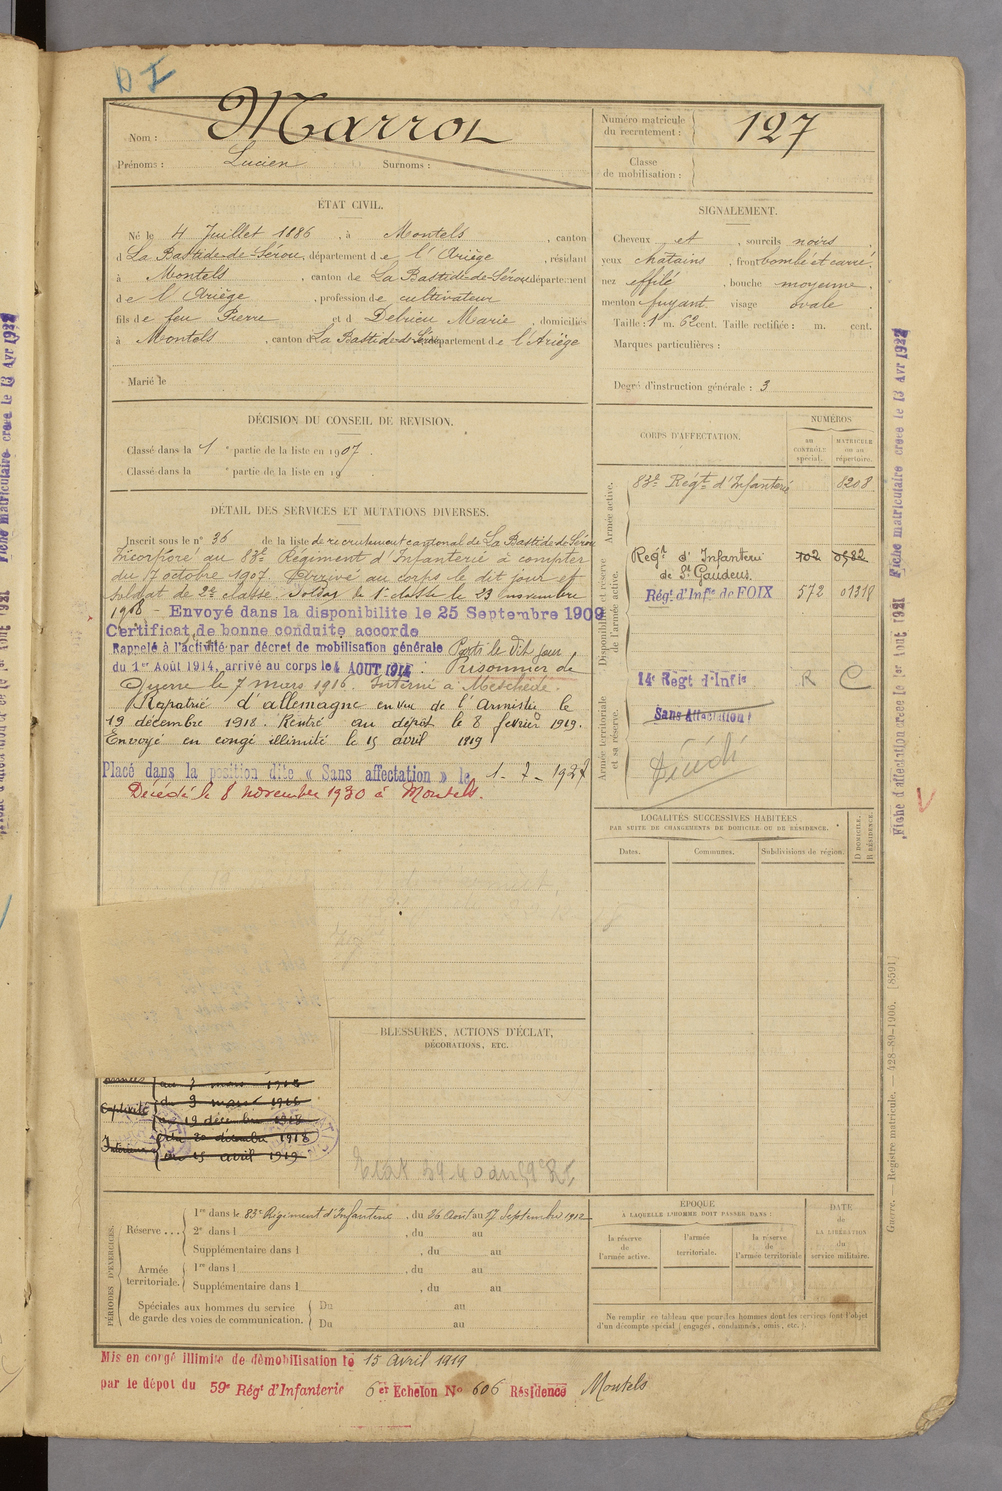 D I
Marrot
Nom :
Prénoms : Lucien Surnoms :
Numéro matricule du recrutement : 127
Classe de mobilisation :
ÉTAT CIVIL.
Né le 4 Juillet 1886, à Montels, canton
d La Bastide-de-Sérou, département de l'Ariège, résidant
à Montels, canton de La Bastide-de-Sérou département
de l'Ariège, profession de cultivateur
fils de feu Pierre et d Debrieu Marie, domiciliés
à Montels, canton d La Bastide-de-Sérou département de l'Ariège
Marié le
SIGNALEMENT.
Cheveux et, sourcils noirs
yeux chatains, front bombé et carré,
nez effilé, bouche moyenne,
menton fuyant visage ovale
Taille : 1 m. 62 cent. Taille rectifiée : m. cent.
Marques particulières :
Degré d'instruction générale : 3
DÉCISION DU CONSEIL DE REVISION.
Classé dans la 1e partie de la liste en 1907.
Classé dans la e partie de la liste en 19
DÉTAIL DES SERVICES ET MUTATIONS DIVERSES.
Inscrit sous le n° 36 de la liste de recrutement cantonal de La Bastide de Sérou
Incorporé au 83e Régiment d'Infanterie à compter
du 7 octobre 1907. Arrivé au corps le dit jour et
soldat de 2e classe. Soldat de 1e classe le 23 novembre
1908 - Envoyé dans la disponibilite le 25 Septembre 1909
Certificat de bonne conduite accorde
Rappelé à l'activité par décret de mobilisation générale Parti le dit jour
du 1er Août 1914, arrivé au corps le 4 AOUT 1914. Prisonnier de
Guerre le 7 mars 1916. Interné à Meschede.
Rapatrié d'allemagne en vue de l'Armistice le
19 décembre 1918. Rentré au dépôt le 8 février 1919.
Envoyé en congé illimité le 15 avril 1919
Placé dans la position dite « Sans affectation » le 1-7-1927
Décédé le 8 novembre 1930 à Montels.
CORPS D'AFFECTATION.
NUMÉROS
au CONTRÔLE spécial.
MATRICULE ou au répertoire.
Armée active.
83e Régt d'Infanterie 8208
Disponibilité et réserve de l'armée active.
Regt d'Infanterie de St Gaudens. 702 0522
Régt d'Infie de FOIX 572 01318
14e Régt d'Infie R C
Armée territoriale et sa réserve.
Sans Affectation
Décédé
LOCALITÉS SUCCESSIVES HABITÉES
PAR SUITE DE CHANGEMENTS DE DOMICILE OU DE RÉSIDENCE.
Dates. Communes. Subdivisions de région. D DOMICILE. R RÉSIDENCE.
BLESSURES, ACTIONS D'ÉCLAT,
DÉCORATIONS, ETC.
au 7 mars 1916
Captivité du 9 mars 1916
au 19 décembre 1918
Intérieur du 20 décembre 1918
au 15 avril 1919
PÉRIODES D'EXERCICES.
Réserve ... 1re dans le 83e Régiment d'Infanterie, du 26 Août au 17 Septembre 1912
2e dans l , du au
Supplémentaire dans l , du au
Armée territoriale. 1re dans l , du au
Supplémentaire dans l , du au
Spéciales aux hommes du service de garde des voies de communication. Du au
Du au
ÉPOQUE
À LAQUELLE L'HOMME DOIT PASSER DANS :
la réserve de l'armée active.
l'armée territoriale.
la réserve de l'armée territoriale
DATE DE LA LIBÉRATION du service militaire.
Ne remplir ce tableau que pour les hommes dont les services font l'objet
d'un décompte spécial (engagés, condamnés, omis, etc.).
Mis en congé illimité de démobilisation le 15 avril 1919
par le dépôt du 59e Régt d'Infanterie 6er Echelon No 606 Résidence Montels
Fiche matriculaire créée le 13 Avr 1922
Fiche d'affectation créée le 1er Aout 1921
Guerre. — Registre matricule. — 428-89-1906. [8591]